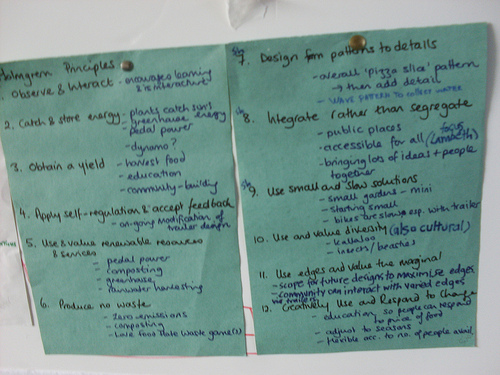 Holmgren Principles
1. Observe & Interact - encourages learning
& is interactive
2. Catch & store energy - plants catch sun
- greenhouse energy
- pedal power
- dynamo?
3. Obtain a yield - harvest food
- education
- community-building
4. Apply self-regulation & accept feedback
- on-going modification of
trailer design
5. Use & value renewable resources
& services
- pedal power
- composting
- greenhouse
- rainwater harvesting
6. Produce no waste
- zero emissions
- composting
- Love Food Hate Waste game(s)
7. Design from patterns to details
- overall 'pizza slice' pattern
→ then add detail
- WAVE PATTERN TO COLLECT WATER
8. Integrate rather than segregate
- public places
- accessible for all
- bringing lots of ideas + people
together
9. Use small and slow solutions
- small gardens - mini
- starting small
- bikes are slow esp. with trailer
10. Use and value diversity (also cultural)
- kallaloo
- insects/beasties
11. Use edges and value the marginal
- scope for future designs to maximise edges
- community can interact with varied edges
12. Creatively Use and Respond to Change
- education, so people can respond
to price of food
- adjust to seasons
- flexible acc. to no. of people avail.